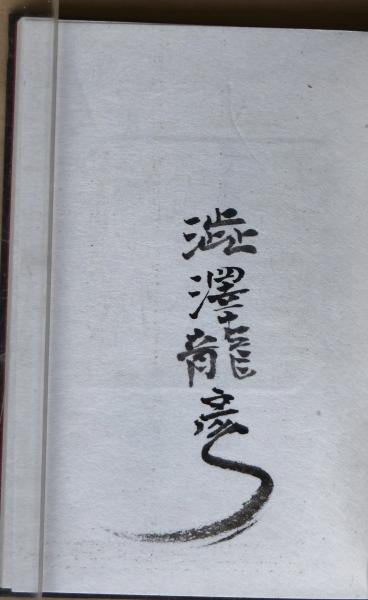 澁澤龍彦